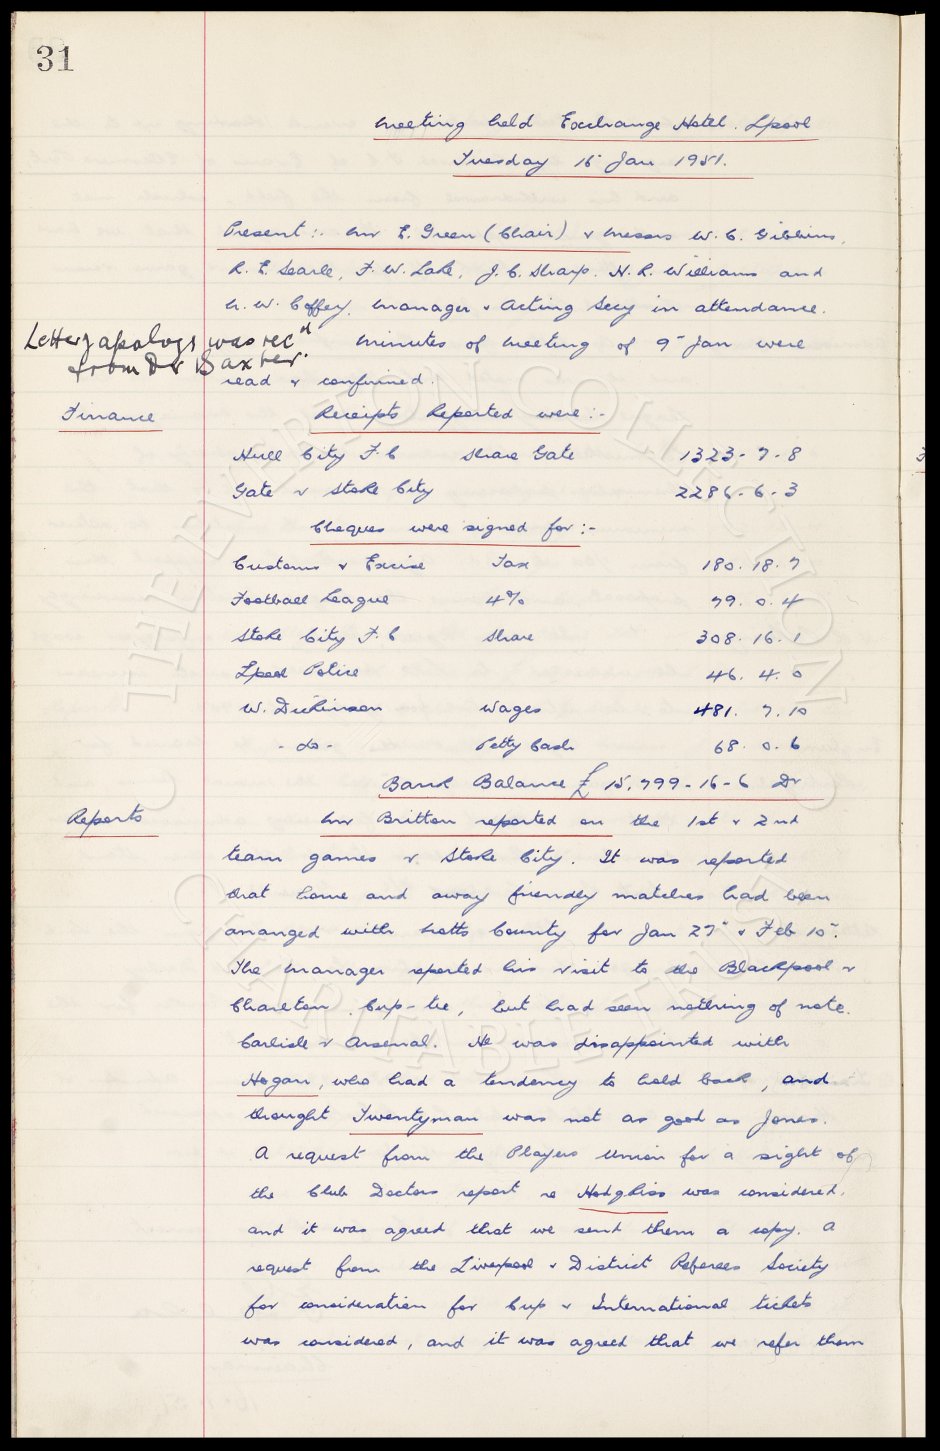 31
Meeting held Exchange Hotel. Lpool
Tuesday 16 Jan 1951.
Present:- Mr E. Green (Chair) & Messrs W. C. Gibbins,
R. E. Searle, F. W. Lake, J. C. Sharp. N. R. Williams and
H. W. Coffey. Manager & Acting Secy in attendance.
Letter of apology was recd
from Dr Baxter.
Minutes of Meeting of 9" Jan were
read & confirmed.
Finance
Receipts Reported were:-
Hull City F.C Share Gate 1323-7-8
Gate v Stoke City 2286-6-3
Cheques were signed for:-
Customs & Excise Tax 180.18.7
Football League 4% 79.0.4
Stoke City F.C Share 308.16.1
Lpool Police 46.4.0
W. Dickinson Wages 481.7.10
- do - Petty Cash 68.0.6
Bank Balance £15,799-16-6 Dr
Reports
Mr Britton reported on the 1st & 2nd
team games v Stoke City. It was reported
that home and away friendly matches had been
arranged with Notts County for Jan 27" & Feb 10".
The Manager reported his visit to the Blackpool v
Charlton Cup-tie, but had seen nothing of note.
Carlisle v Arsenal. He was disappointed with
Hogan, who had a tendency to hold back, and
thought Twentyman was not as good as Jones.
A request from the Players Union for a sight of
the Club Doctors report re Hodgkiss was considered,
and it was agreed that we send them a copy. A
request from the Liverpool & District Referees Society
for consideration for Cup & International tickets
was considered, and it was agreed that we refer them
THE EVERTON COLLECTION
CHARITABLE TRUST